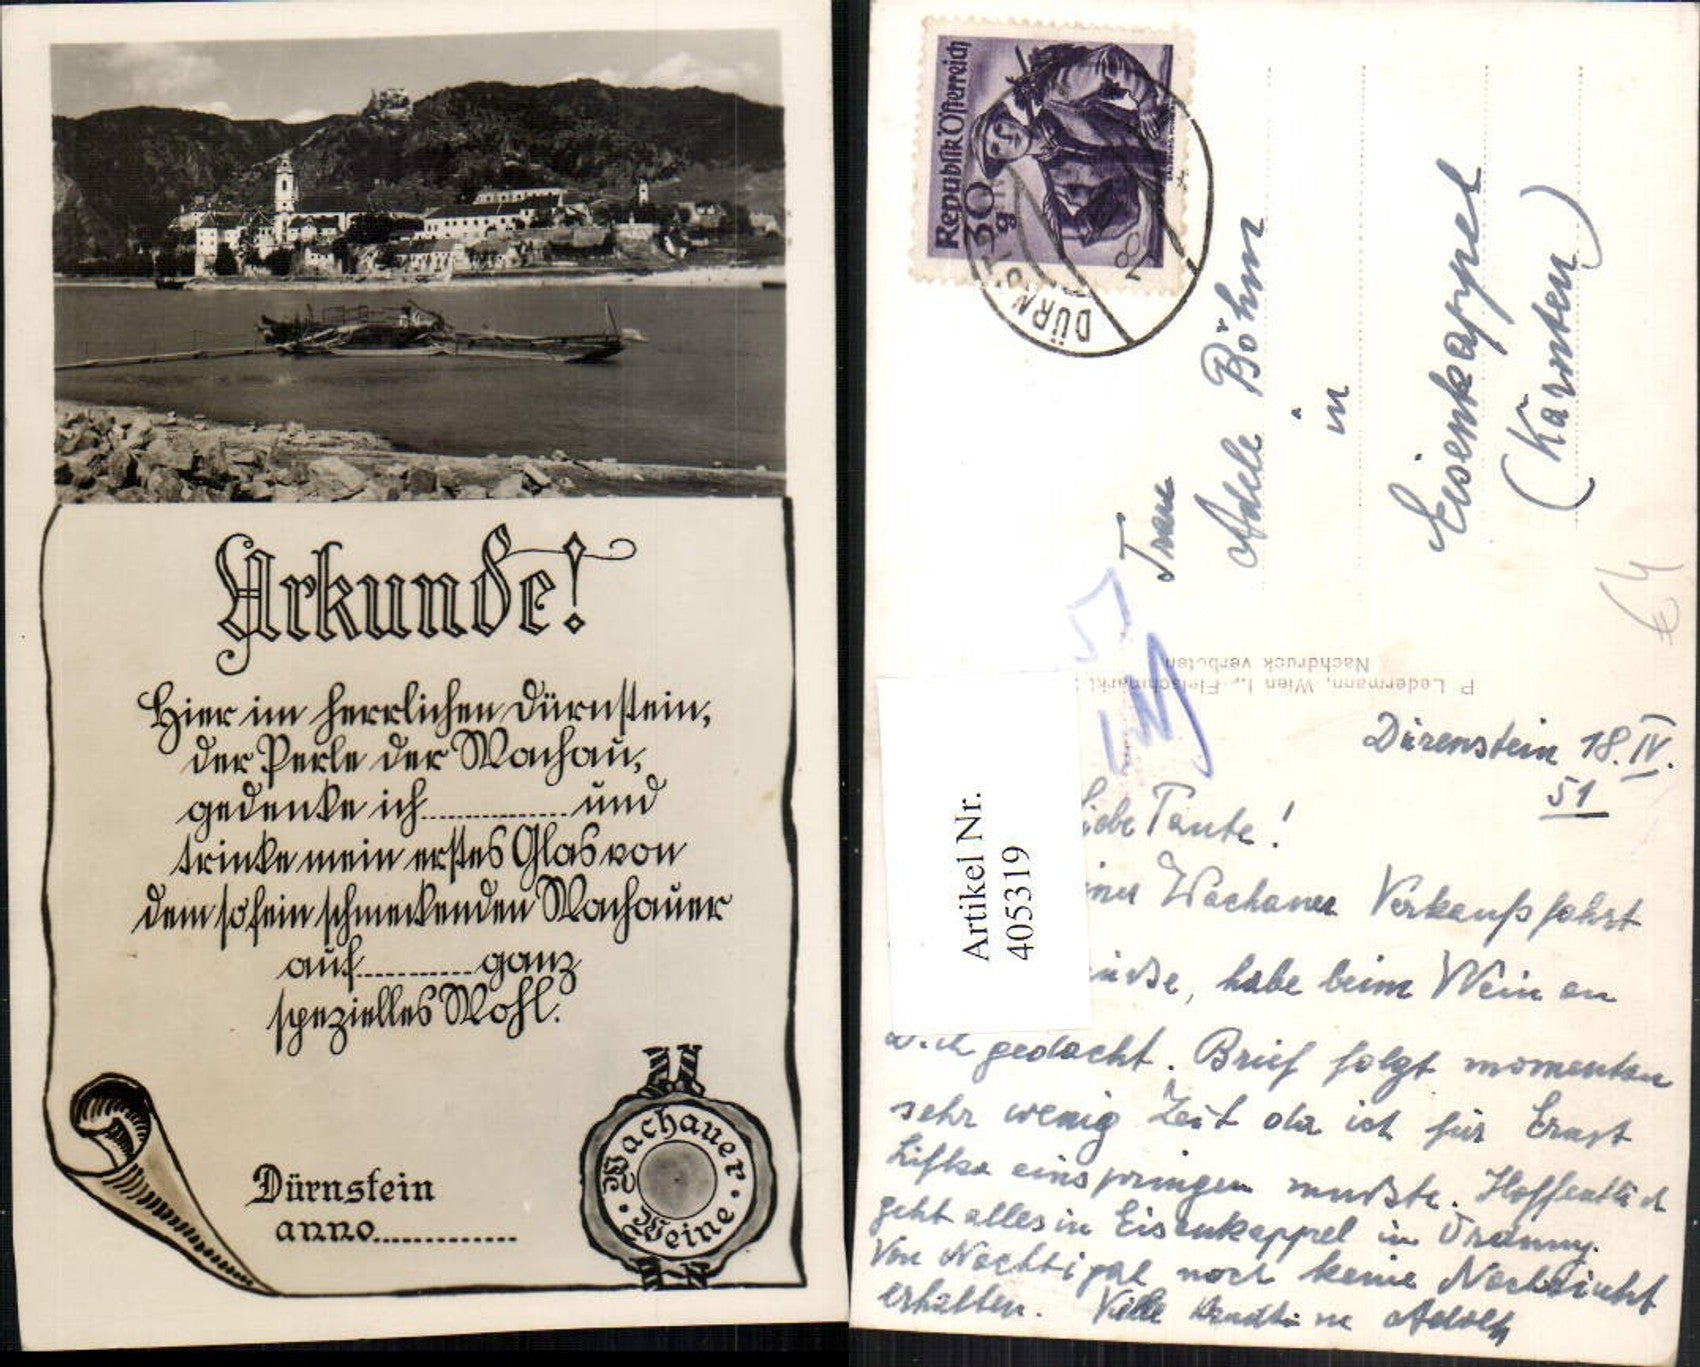 Urkunde!
Hier im herrlichen Dürnstein,
der Perle der Wachau,
gedenke ich............und
trinke mein erstes Glas von
dem so fein schmeckenden Wachauer
auf...........ganz
spezielles Wohl.
Dürnstein
anno...............
Wachauer
Weine
Republik Österreich
30 g
DÜRNST
Frau
Adele Böhm
in
Eisenkappel
(Kärnten)
P. Ledermann, Wien I., Fleischmarkt
Nachdruck verboten
Artikel Nr.
405319
Dürenstein 18. IV.
51
Liebe Tante!
Wachauer Verkaufsfahrt
habe beim Wein an
gedacht. Brief folgt momentan
sehr wenig Zeit da ich für Ernst
einspringen mußte. Hoffentlich
geht alles in Eisenkappel in Ordnung.
Von Nachtigal noch keine Nachricht
erhalten. Viele Adolf